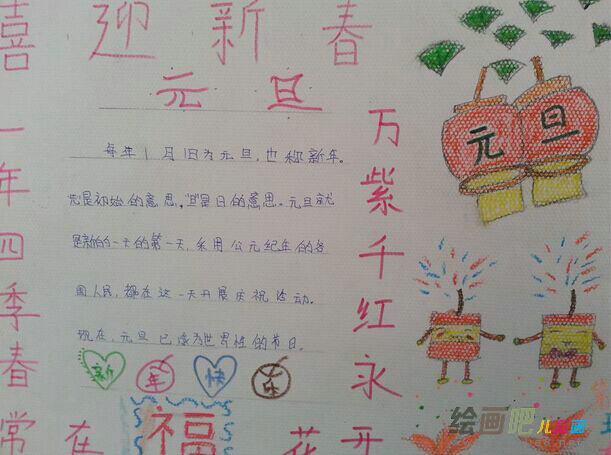 喜迎新春
元旦
每年1月1日为元旦,也称新年。
元是初始的意思,"旦"是日的意思。元旦就
是新的一天的第一天,采用公元纪年的各
国人民,都在这一天开展庆祝活动。
现在,元旦已成为世界性的节日。
新年快乐
一年四季春常在
福
万紫千红永开花
元旦
绘画吧